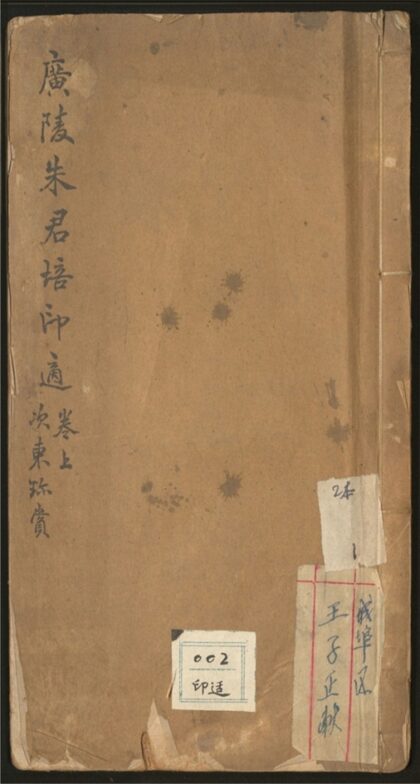 廣陵朱君培印適
卷上
次東珎賞
2本
1
王子正
002
印适